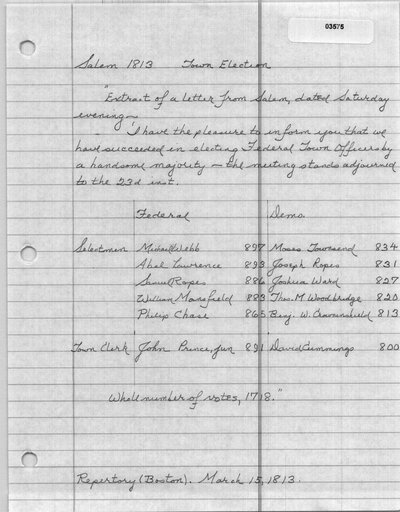 03575
Salem 1813 Town Election
"Extract of a letter from Salem, dated Saturday
evening —
'I have the pleasure to inform you that we
have succeeded in electing Federal Town Officers by
a handsome majority — the meeting stands adjourned
to the 23d inst.
Federal Demo.
Selectmen Michael Webb 897 Moses Townsend 834
Abel Lawrence 893 Joseph Ropes 831
Samuel Ropes 886 Joshua Ward 827
William Mansfield 883 Thos. M Woodbridge 820
Philip Chase 865 Benj. W. Crowninshield 813
Town Clerk John Prince, Jun 891 David Cummings 800
Whole number of votes, 1718."
Repertory (Boston). March 15, 1813.